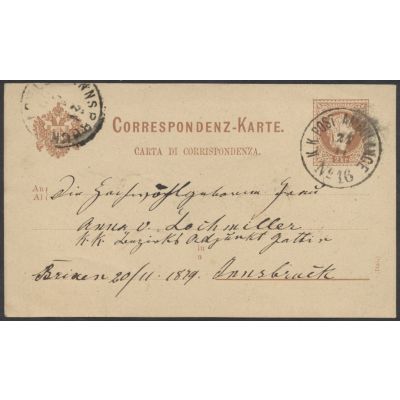 INNSBRUCK
CORRESPONDENZ-KARTE.
CARTA DI CORRISPONDENZA.
K.K. POST AMBULANCE
No 16
An
Die Hochwohlgeborene Frau
Anna v. Lochmiller
k.k. Bezirks Adjunkt Gattin
in
Brixen 20/11. 1879. Innsbruck